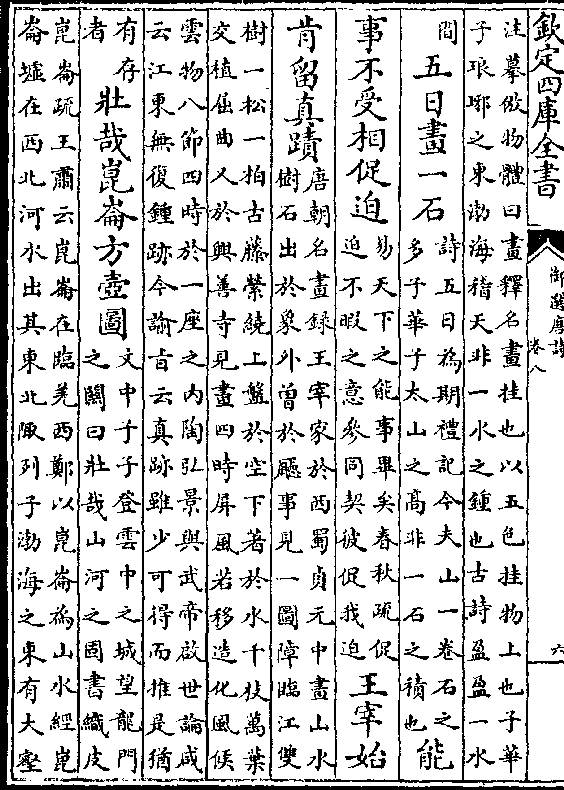 欽定四庫全書
御選唐詩
卷八
六
注摹倣物體曰畫釋名畫挂也以五色挂物上也子華
子琅琊之東渤海稽天非一水之鍾也古詩盈盈一水
間
五日畫一石
詩五日為期禮記今夫山一卷石之
多子華子太山之高非一石之積也
能
事不受相促迫
易天下之能事畢矣春秋疏促
迫不暇之意參同契彼促我迫
王宰始
肯留真蹟
唐朝名畫錄王宰家於西蜀貞元中畫山水
樹石出於象外曾於廳事見一圖障臨江雙
樹一松一柏古藤縈繞上盤於空下著於水千枝萬葉
交植屈曲又於興善寺見畫四時屏風若移造化風候
雲物八節四時於一座之內陶弘景與武帝啟世論咸
云江東無復鍾跡今論旨云真跡雖少可得而推是猶
有存
者
壯哉崑崙方壺圖
文中子子登雲中之城望龍門
之關曰壯哉山河之固書織皮
崑崙疏王肅云崑崙在臨羌西鄭以崑崙為山水經崑
崙墟在西北河水出其東北陬列子渤海之東有大壑